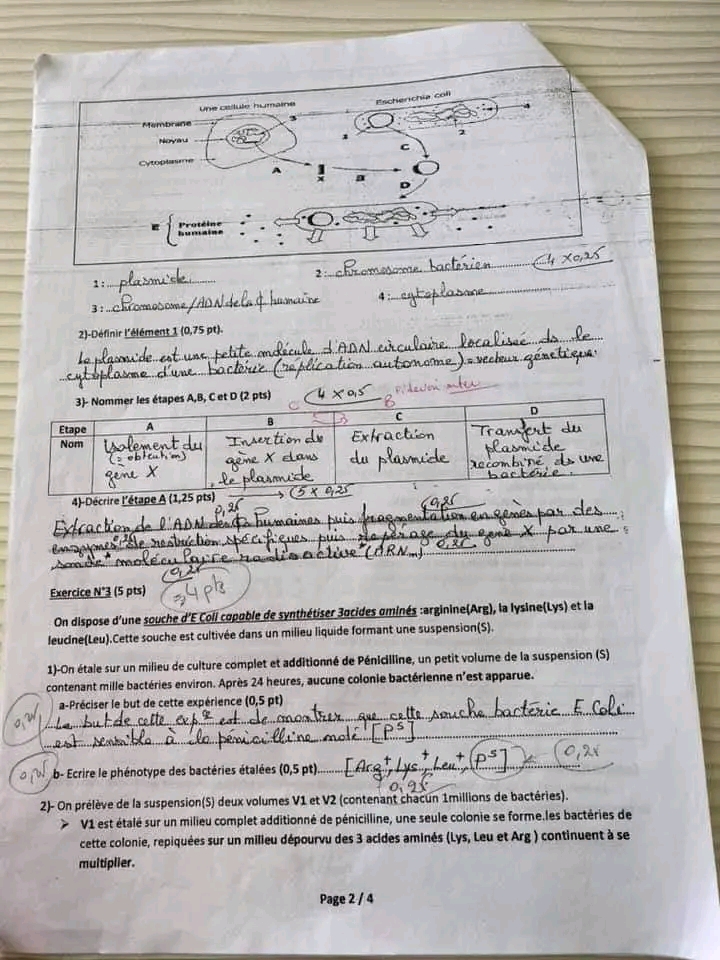 Une cellule humaine
Escherichia coli
Membrane
Noyau
Cytoplasme
3
1
2
4
A
C
X
B
D
E { Protéine humaine
1:...plasmide...
2:...chromosome bactérien... 4 x 0,25
3:...chromosome/ADN de la ¢ humaine
4:...cytoplasme...
2)-Définir l'élément 1 (0,75 pt).
Le plasmide est une petite molécule d'ADN circulaire localisée ds le
cytoplasme d'une bactérie (réplication autonome) = vecteur génétique.
3)- Nommer les étapes A,B, C et D (2 pts) 4 x 0,5
C B
Etape A B C D
Nom Isolement du (= obtention) gène X
Insertion du gène X dans le plasmide
Extraction du plasmide
Transfert du plasmide recombiné ds une bactérie.
4)-Décrire l'étape A (1,25 pts) → 5 x 0,25
0,25 0,25
Extraction de l'ADN des ¢ humaines puis fragmentation en gènes par des
enzymes de restriction spécifiques puis repérage du gène X par une
sonde moléculaire radioactive (ARNm)
0,25 0,25
Exercice N°3 (5 pts) ⇒ 4 pts
On dispose d'une souche d'E Coli capable de synthétiser 3acides aminés :arginine(Arg), la lysine(Lys) et la
leucine(Leu).Cette souche est cultivée dans un milieu liquide formant une suspension(S).
1)-On étale sur un milieu de culture complet et additionné de Pénicilline, un petit volume de la suspension (S)
contenant mille bactéries environ. Après 24 heures, aucune colonie bactérienne n'est apparue.
a-Préciser le but de cette expérience (0,5 pt)
Le but de cette expce est de montrer que cette souche bactérie E Coli
est sensible à la pénicilline [PS]
b- Ecrire le phénotype des bactéries étalées (0,5 pt)...[Arg+, Lys+, Leu+, PS] 0,25
0,25
2)- On prélève de la suspension(S) deux volumes V1 et V2 (contenant chacun 1millions de bactéries).
➢ V1 est étalé sur un milieu complet additionné de pénicilline, une seule colonie se forme.les bactéries de
cette colonie, repiquées sur un milieu dépourvu des 3 acides aminés (Lys, Leu et Arg ) continuent à se
multiplier.
Page 2 / 4